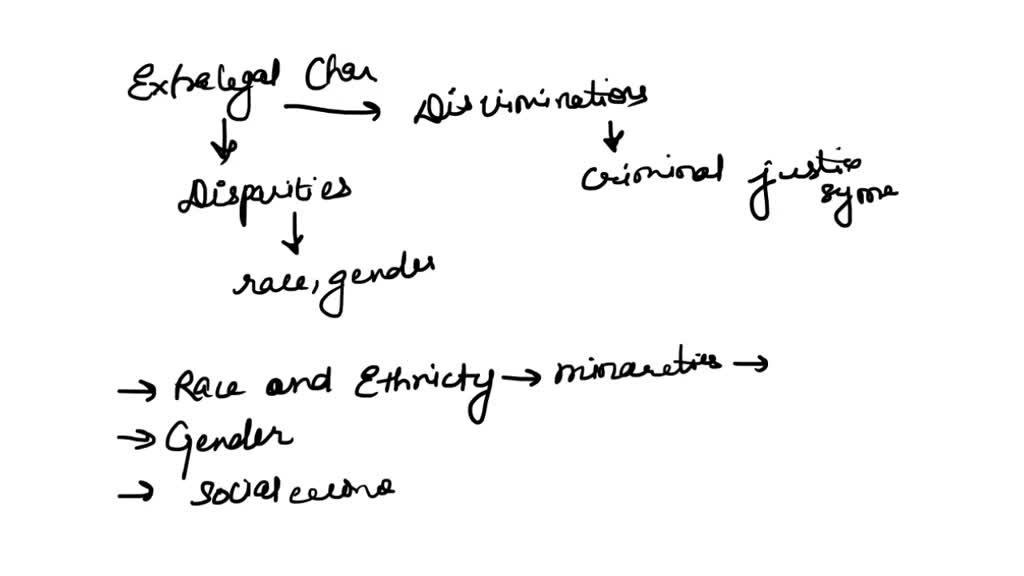 Extralegal Char → Discriminations
↓ ↓
Disparities criminal justice syme
↓
race, gender
→ Race and Ethnicty → minareties →
→ Gender
→ social